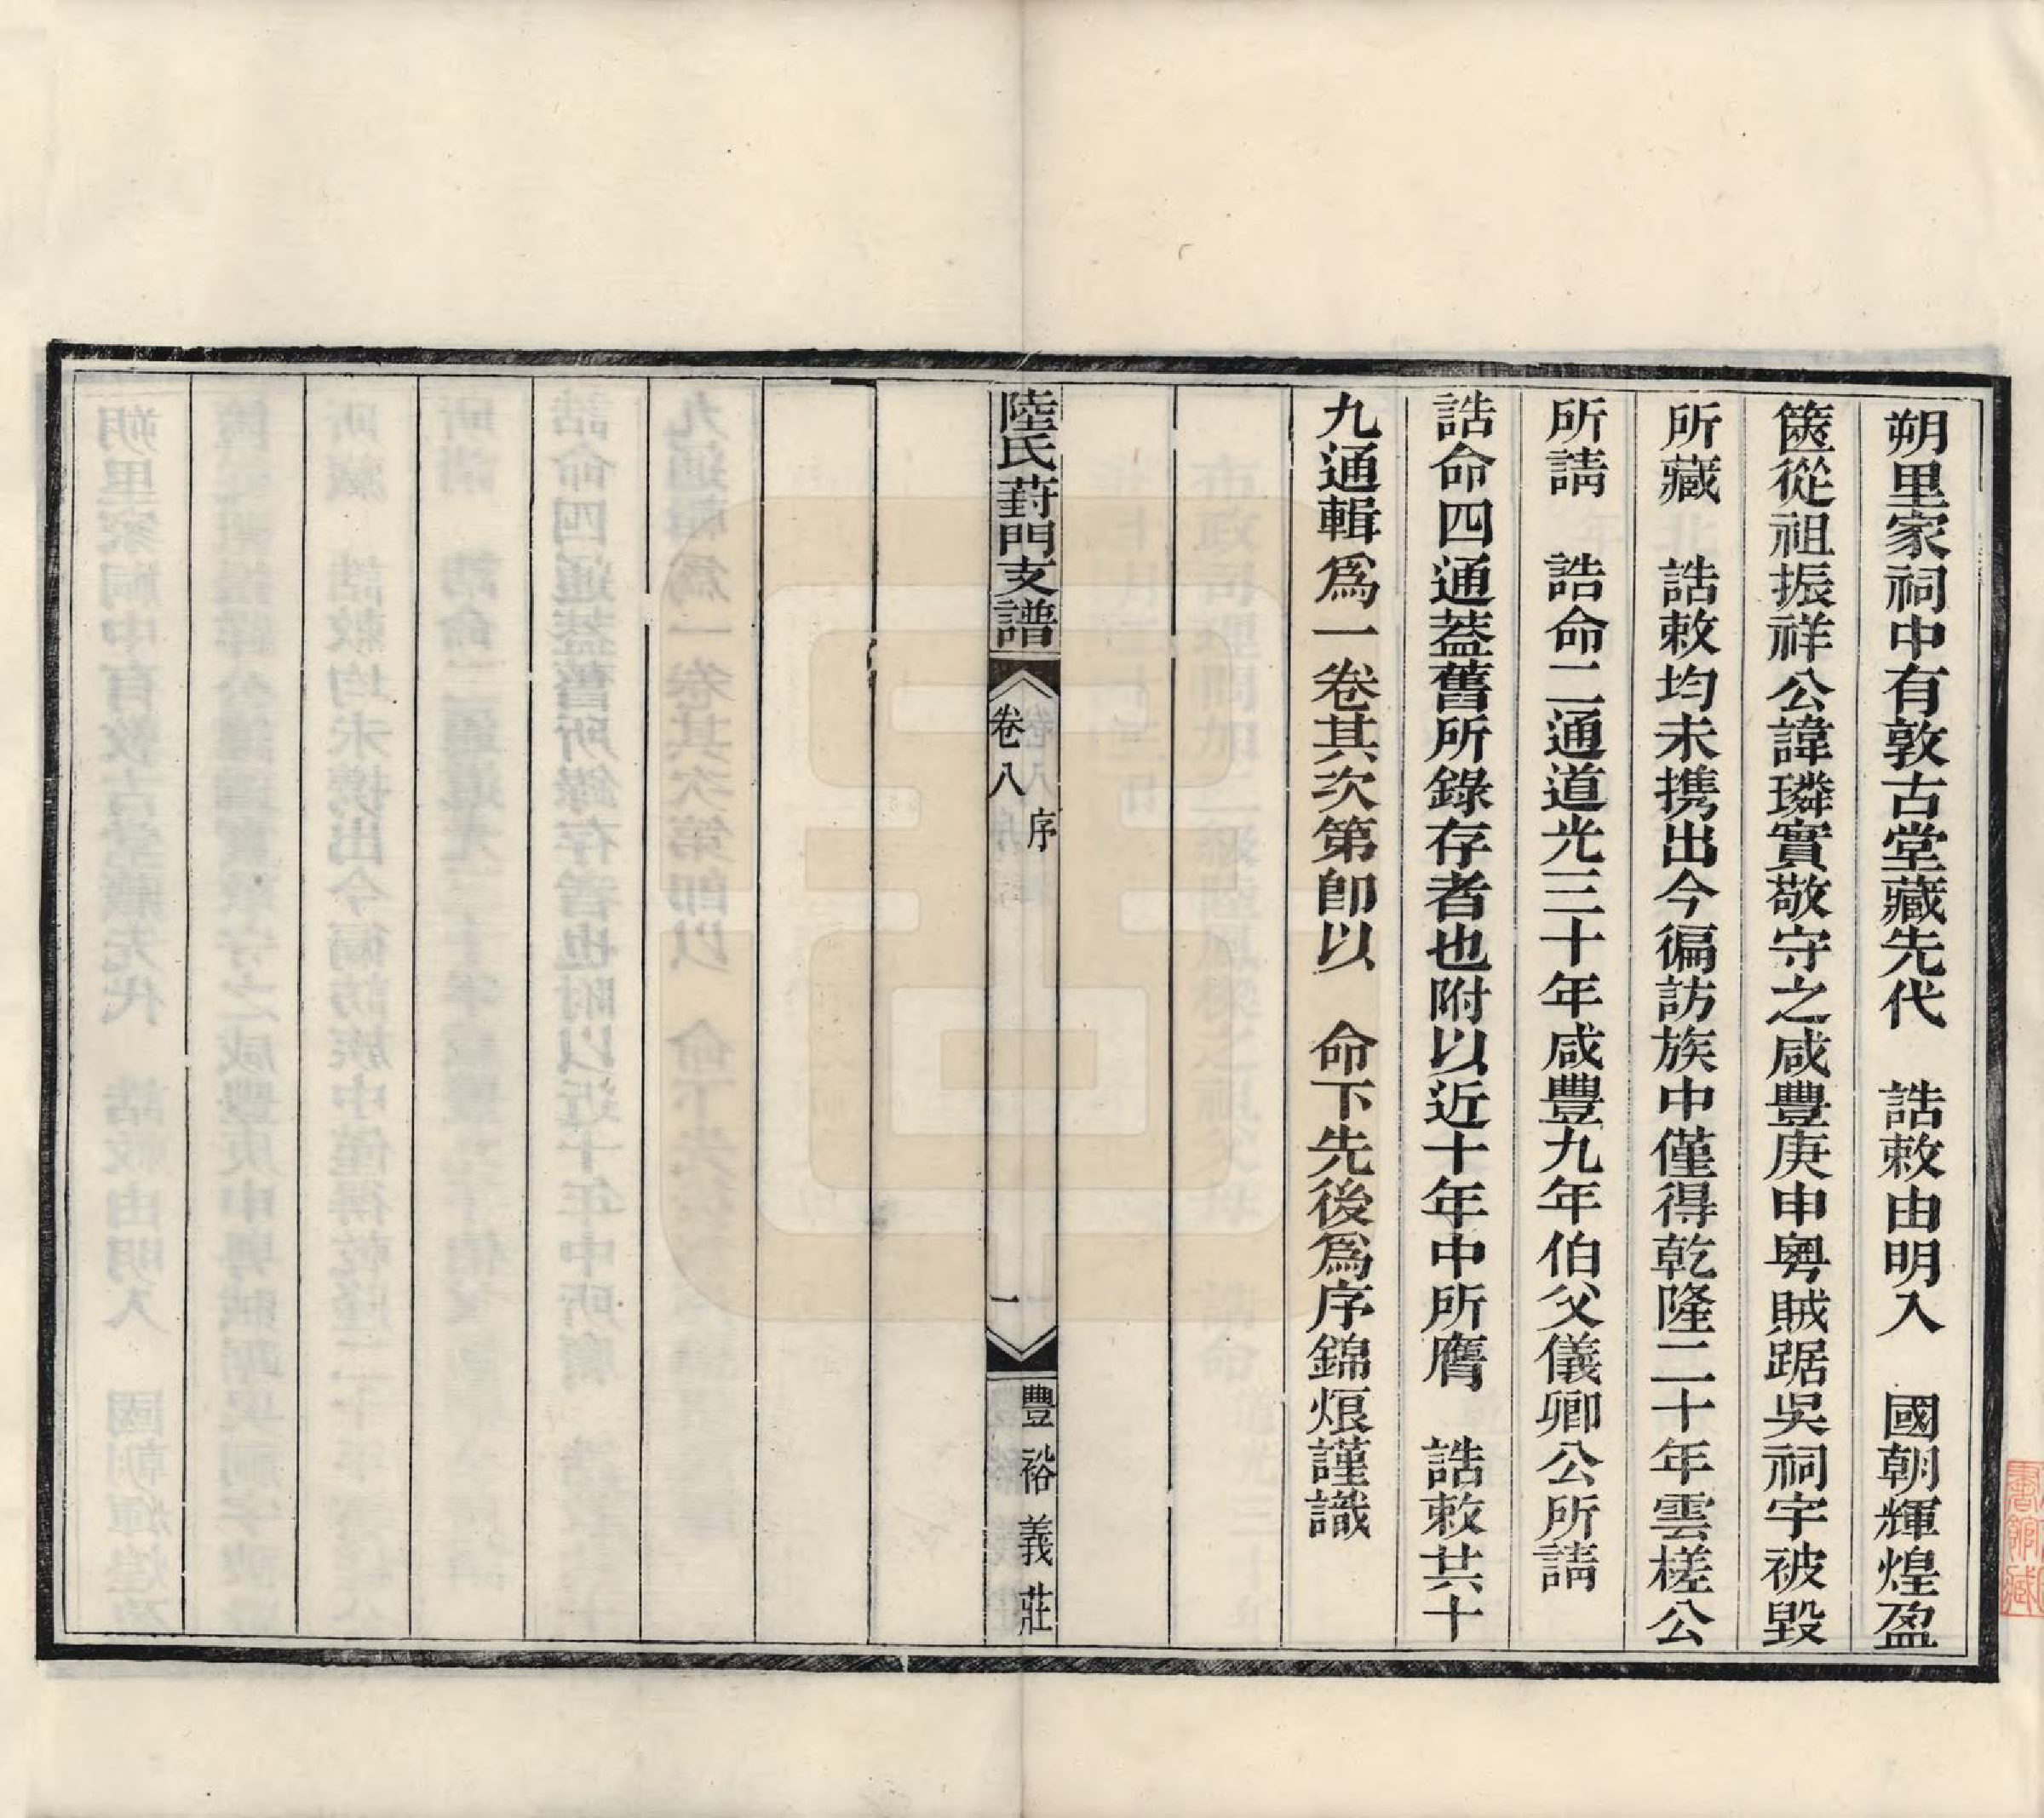 朔里家祠中有敦古堂藏先代　誥敕由明入　國朝輝煌盈
篋從祖振祥公諱璘實敬守之咸豐庚申粵賊踞吳祠宇被毀
所藏　誥敕均未携出今徧訪族中僅得乾隆二十年雲槎公
所請　誥命二通道光三十年咸豐九年伯父儀卿公所請
誥命四通葢舊所錄存者也附以近十年中所膺　誥敕共十
九通輯爲一卷其次第卽以　命下先後爲序錦烺謹識
陸氏葑門支譜
卷八
序
一
豐裕義莊
書館藏